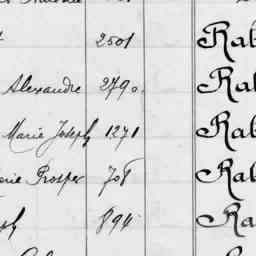 2501 Rab
Alexandre 2790 Rab
Marie Joseph 1271 Rab
Prosper 708 Rab
894 Ra